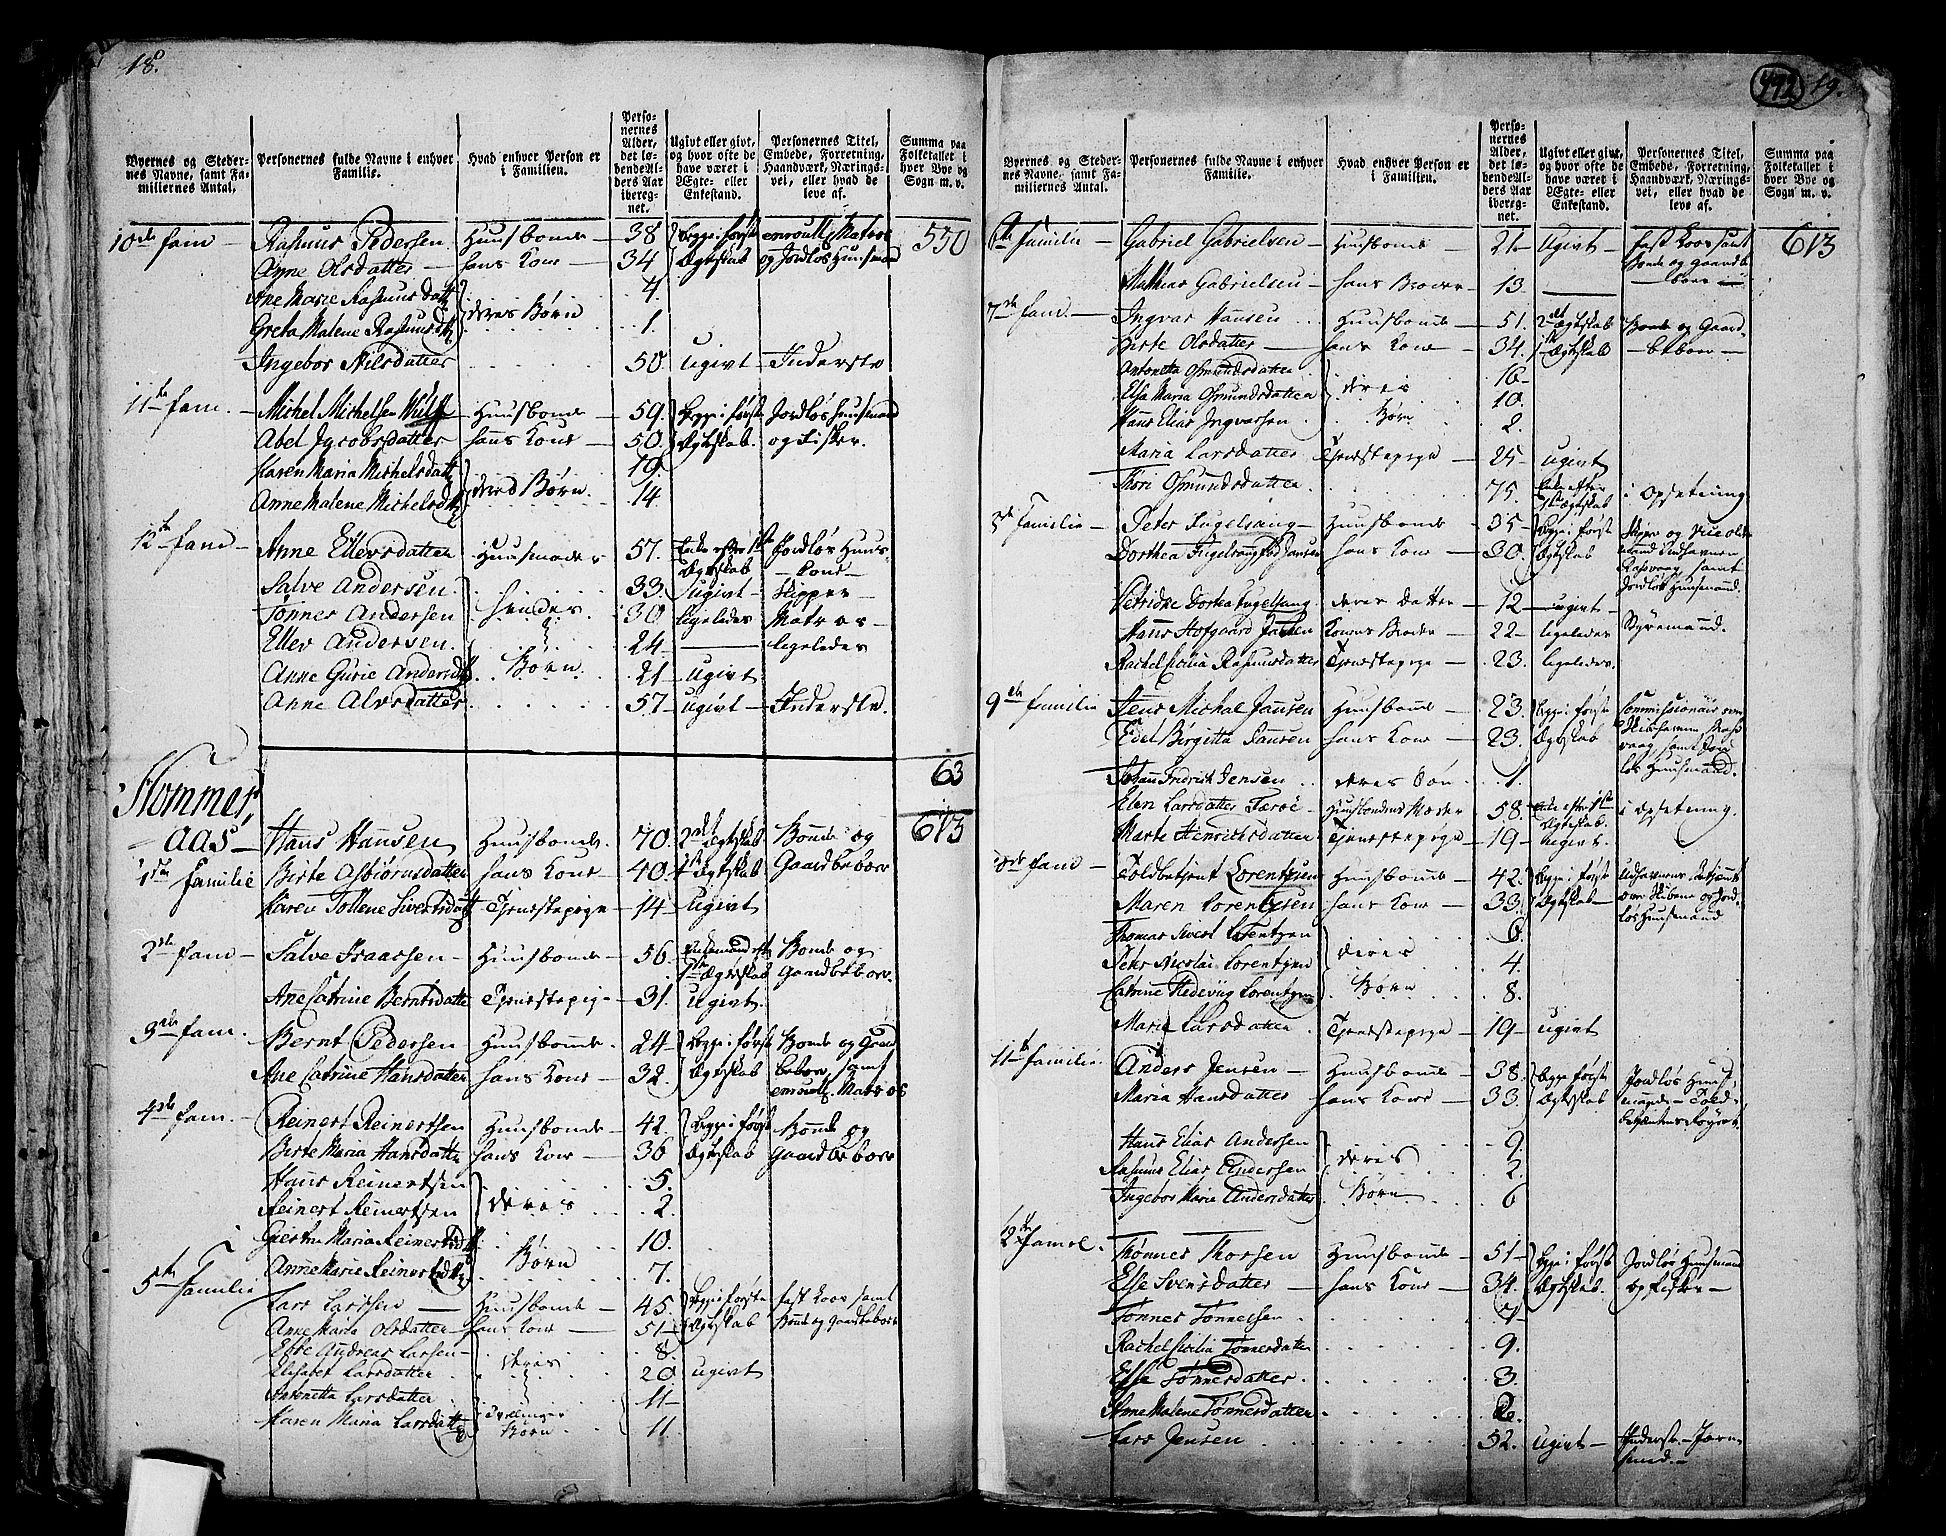 18.
Byernes og Steder-
nes Navne, samt Fa-
miliernes Antal.
Personernes fulde Navne i enhver
Familie.
Hvad enhver Person er
i Familien.
Perso-
nernes
Alder,
det lø-
bende Al-
ders Aar
iberegnet.
Ugivt eller givt,
og hvor ofte de
have været i
Ægte- eller
Enkestand.
Personernes Titel,
Embede, Forretning,
Haandværk, Nærings-
vei, eller hvad de
leve af.
Summa paa
Folketallet i
hver Bye og
Sogn m. v.
10de fam — Rasmus Pedersen Huusbonde 38 Begge i første enroull. Matros 550
Anne Olsdatter hans Kone 34 Ægteskab og Jordløs Huusmand
Ane Marie Rasmusdatt. 4
deres Børn
Grete Malene Rasmusd. 1.
Ingebor Nilsdatter 50 ugivt Inderste
11te fam. — Michel Michelsen Huusbonde 59. Begge i første Jordløs Huusmand
Abel Jacobsdatter hans Kone 50. Ægteskab. og Fisker.
Karen Maria Michelsdatt. 19.
deres Børn.
Anne Malene Michelsd. 14
12te fam — Anne Ellevsdatter Huusmoder 57. Enke efter 1ste Jordløs Huus-
Ægteskab kone
Salve Andersen. 33. ugivt Skipper
Tønnes Andersen hendes 30 ligeledes Matros
Ellev Andersen. 24 ligeledes
Anne Gurie Andersd. Børn 21 ugivt
Anne Alvsdatter 57 ugivt Inderste.
63
613
Flommer,
aas Hans Hansen Huusbonde. 70. 2det Ægteskab Bonde og
1ste Familie Birte Asbiørnsdatter hans Kone 40. 1ste Ægteskab Gaardbeboer
Karen Tollene Sivertsdatt. Tjenestepige 14 ugivt
2de fam — Salve Isaacsen Huusbonde 56. Enkemand efter Bonde og
1ste Ægteskab Gaardbeboer
Ane Catrine Berntsdatter Tjenestepige 31. ugivt.
3die fam. Bernt Pedersen Huusbonde. 24 Begge i første Bonde og Gaard
Ane Catrine Hansdatter hans Kone 32. Ægteskab beboer, samt
enroull. Matros
4de fam. Reinert Reinertsen Huusbonde 42. Begge i første Bonde og
Birte Maria Hansdatter hans Kone 36 Ægteskab Gaardbeboer
Hans Reinertsen 5.
Reinert Reinertsen deres 2.
Maria Reinertsd. 10.
Børn
Anne Marie Reinertsd. 7.
5te Familie Lars Larssen Huusbonde 45. Begge i første samt
Anne Maria Olsdatter hans Kone 51 Ægteskab Bonde og Gaardbeboer
Andreas Larsen 8.
deres
Elisabet Larsdatter 20 ugivt
Antonetta Larsdatter 11
Tvillinger
Karen Maria Larsdatt. Børn 11
492 19.
Byernes og Steder-
nes Navne, samt Fa-
miliernes Antal.
Personernes fulde Navne i enhver
Familie.
Hvad enhver Person er
i Familien.
Perso-
nernes
Alder,
det lø-
bende Al-
ders Aar
iberegnet.
Ugivt eller givt,
og hvor ofte de
have været i
Ægte- eller
Enkestand.
Personernes Titel,
Embede, Forretning,
Haandværk, Nærings-
vei, eller hvad de
leve af.
Summa paa
Folketallet i
hver Bye og
Sogn m. v.
6te Familie — Gabriel Gabrielsen Huusbonde 21 ugivt samt 613
Bonde og Gaardbe
Mathias Gabrielsen hans Broder 13 boer
7de fam. — Ingvar Hansen Huusbonde 51. 2det Ægteskab Bonde og Gaard-
Birte Olsdatter hans Kone 34. 1ste Ægteskab beboer
Antonetta Osmundsdatter 16
Else Maria Osmundsdatter deres 10.
Hans Elias Ingvarsen Børn 2
Maria Larsdatter Tjenestepige 25 ugivt
Thori Osmundsdatter 75. Enke efter
1ste Ægteskab i Opsetning
Familie — Peter Fugelsang Huusbonde 35 Begge i første Skipper og
Dorthea Fugelsang fød Jansen hans Kone 30. Ægteskab
samt
Jordløs Huusmand.
Petricke Dorthea Fugelsang deres Datter 12 ugivt
Hans Hofgaard Jansen Konens Broder 22 ligeledes Styremand.
Rachel Cicilia Rasmusdatter Tjenestepige 23. ligeledes.
9de familie Jens Michal Jansen Huusbonde 23. Begge i første Commissionair over
Edel Birgitta Jansen hans Kone 23. Ægteskab
samt Jord
Johan Fridrich Jensen deres Søn 1. løs Huusmand.
Elen Larsdatter Huusbondens Moder 58. Enke efter 1ste i Opsetning
Ægteskab.
Marte Henrichsdatter Tjenestepige 19 ugivt.
10de fam Toldbetjent Lorentzen Huusbonde 42. Begge i første
Maren Lorentzen hans Kone 33. Ægteskab og Jord-
løs Huusmand
Thomas Sivert Lorentzen 6.
Peter Nicolai Lorentzen deres 4.
Catrine Hedevig Lorentzen Børn 8.
Marie Larsdatter Tjenestepige 19 ugivt
11te familie. Anders Jensen Huusbonde 38. Begge i første Jordløs Huus-
Maria Hansdatter hans Kone 33. Ægteskab mand Told-
Hans Elias Andersen 9.
Rasmus Elias Andersen deres 2.
Ingebor Marie Andersdatter Børn 6
12te Tønnes Thorsen Huusbonde 51 Begge i første Jordløs Huusmand
Else Svensdatter hans Kone 34. Ægteskab. og Fisker
Tønnes Tønnesen 7
Rachel Cicilia Tønnesdatter 9.
Else Tønnesdatter 3.
Anne Malene Tønnesdatter 2.
Lars Jensen 52. ugivt Inderst